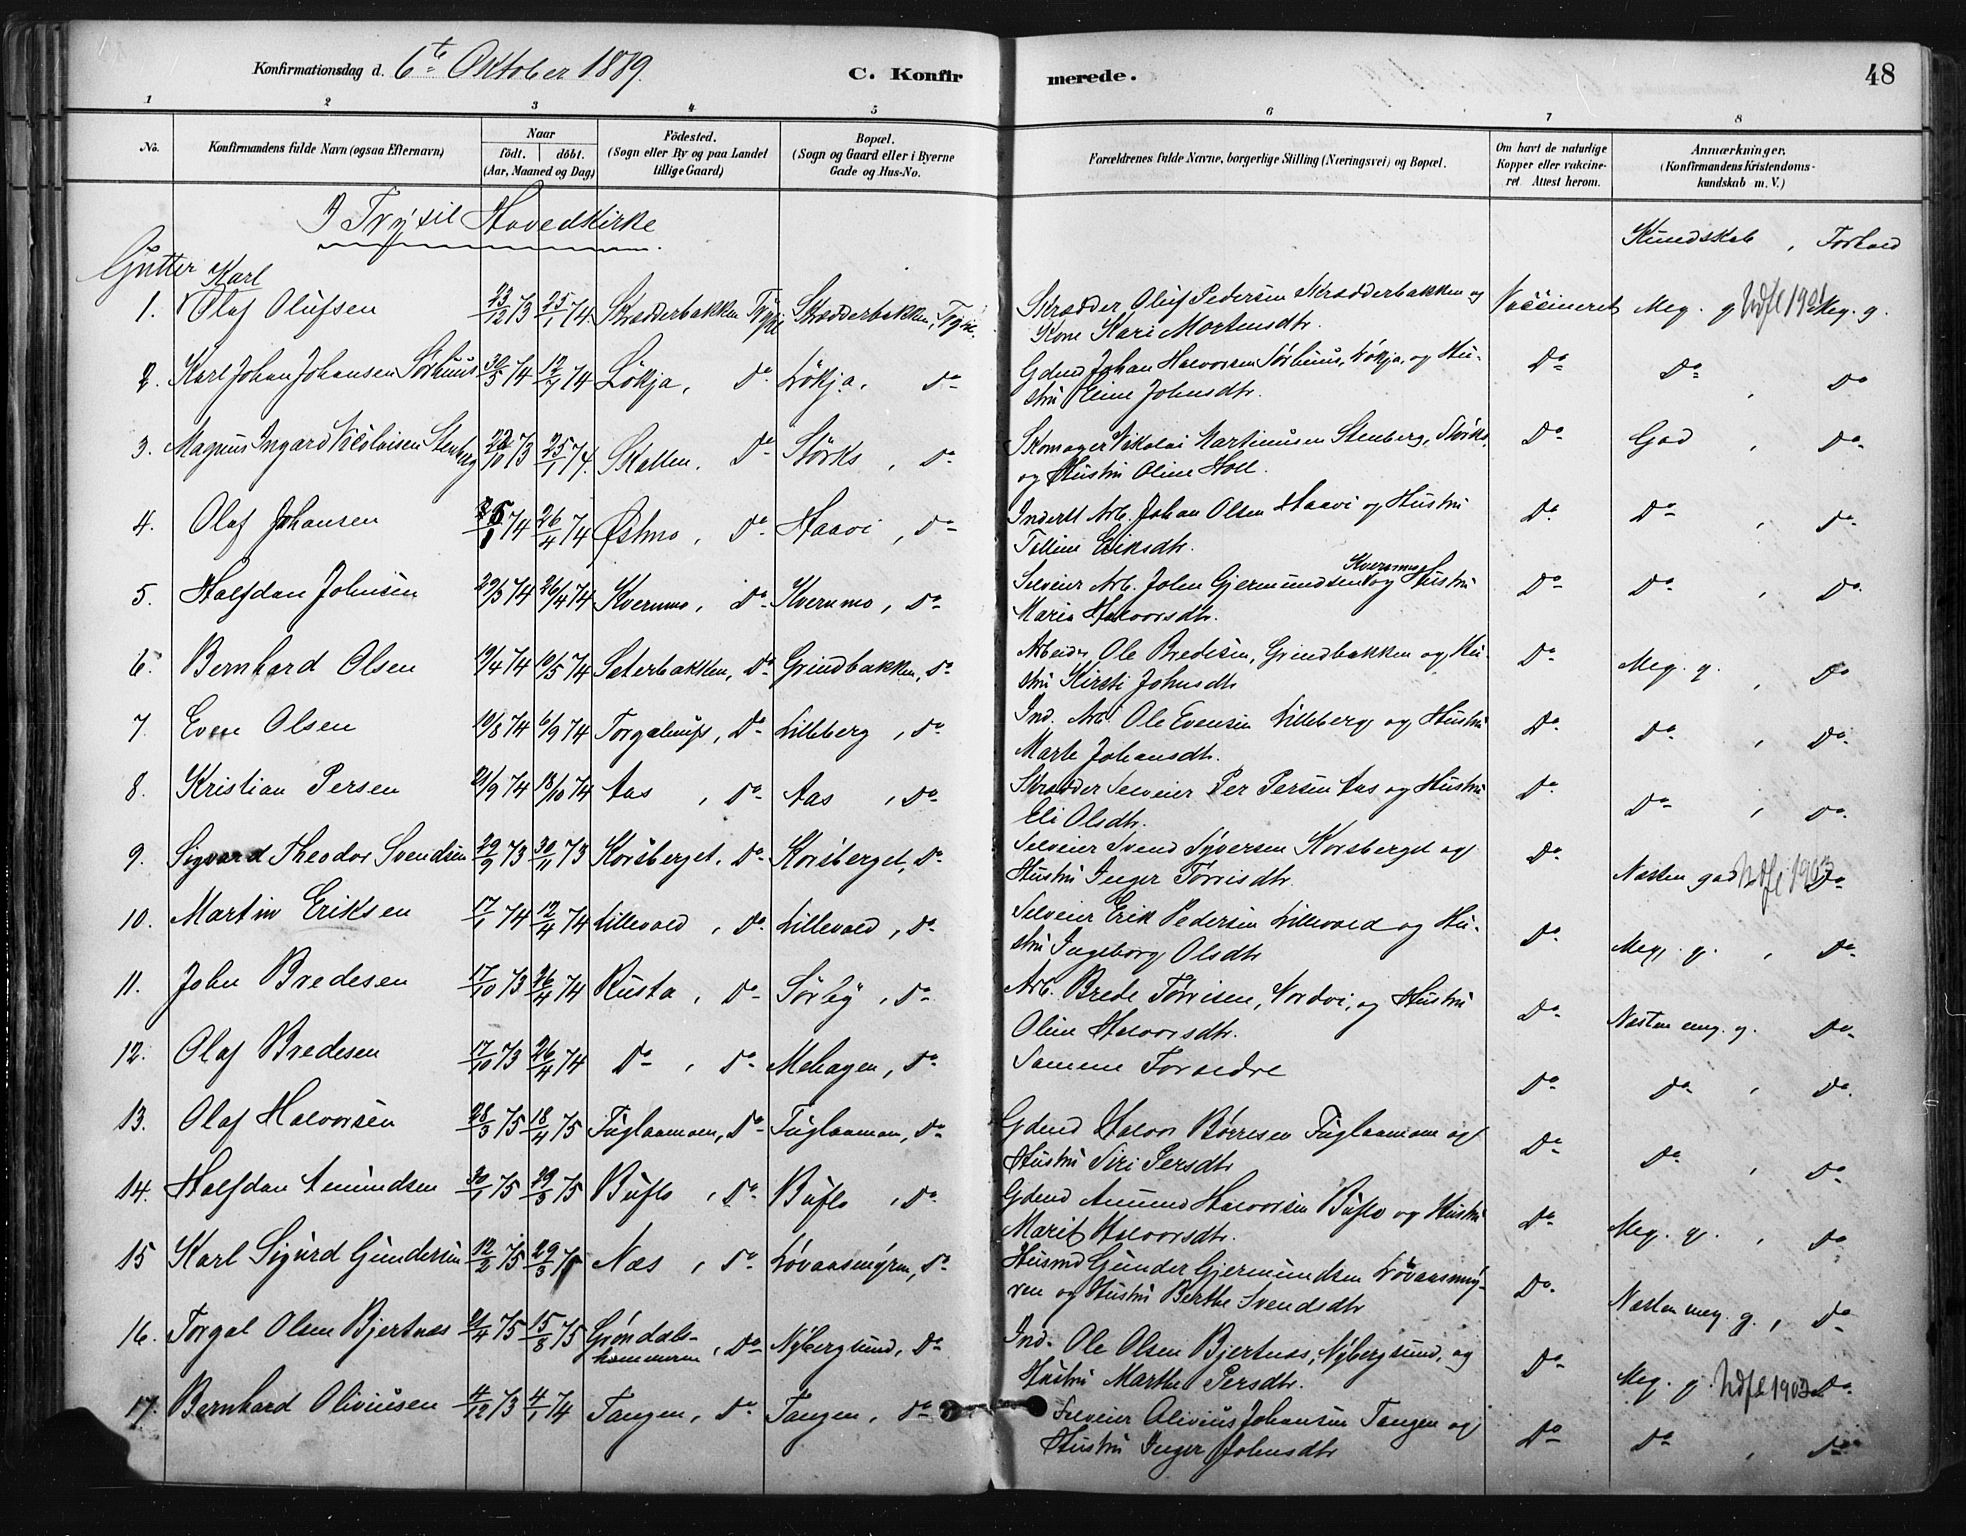 Konfirmationsdag d. 6te Oktober 1889. C. Konfirmerede. 48
1 2 3 4 5 6 7 8
No. Konfirmandens fulde Navn (ogsaa Efternavn) Naar födt. döbt. (Aar, Maaned og Dag) Födested. (Sogn eller By og paa Landet tillige Gaard) Bopæl. (Sogn og Gaard eller i Byerne Gade og Hus-No. Forældrenes fulde Navne, borgerlige Stilling (Næringsvei) og Bopæl. Om havt de naturlige Kopper eller vakcineret. Attest herom. Anmærkninger. (Konfirmandens Kristendomskundskab m. V.)
I Trysil Hovedkirke Kundskab, Forhold
Gutter Karl
1. Olaf Olufsen 23/12 73 25/1 74. Skrædderbakken Trysil Skrædderbakken, Trysil Skrædder Oluf Pedersen Skrædderbakken og Kone Kari Mortensdtr. Vaccineret Meg. g Udfl 1901 Meg. g.
2. Karl Johan Johansen Sørhuus 30/5 74 12/7 74 Løkja, Do Løkja, Do Gdmd Johan Halvorsen Sørhuus, Løkja, og Hustru Eline Johnsdtr. Do Do, Do
3. Magnus Ingard Nicolaisen Stenberg 22/10 73 25/1 74. Skallen, Do Størks, Do Skomager Nikolai Martinusen Stenberg, Størks, og Hustru Oline Holl. Do God, Do
4. Olaf Johansen 74 26/4 74 Østmo, Do Haavi, Do Inderst Arb. Johan Olsen Haavi og Hustru Eriksdtr. Do Do, Do
5. Halfdan Johnsen 29/3 74 26/4 74 Kvernmo, Do Kvernmo, Do Selveier Arb. John Gjermundsen Kvernmo og Hustru Maria Halvorsdtr. Do Do, Do
6. Bernhard Olsen 9/4 74 10/5 74 Seterbakken, Do Grindbakken, Do Arbeider Ole Bredesen, Grindbakken og Hustru Kirsti Johnsdtr Do Meg. g., Do
7. Even Olsen 10/8 74 6/9 74 Do Lilleberg, Do Ind. Arb Ole Evensen Lilleberg og Hustru Marte Johansdtr. Do Do, Do
8. Kristian Persen 21/9 74 18/10 74 Aas, Do Aas, Do Skrædder Selveier Per Persen Aas og Hustru Eli Olsdtr. Do Do, Do
9. Sigvard Theodor Svendsen 29/9 73 30/11 73 Korsberget, Do Korsberget, Do Selveier Svend Syversen Korsberget og Hustru Inger Tørrisdtr. Do Næsten god Udfl 1903 Do
10. Martin Eriksen 17/1 74 12/4 74 Lillevold, Do Lillevold, Do Selveier Erik Pedersen Lillevold og Hustru Ingeborg Olsdtr Do Meg. g., Do
11. John Bredesen 17/10 73 26/4 74 Rusta, Do Sørby, Do Arb. Brede Tørrisen, Nordvi, og Hustru Oline Halvorsdtr. Do Næsten meg. g. Do
12. Olaf Bredesen 17/10 73 26/4 74 Do, Do Mehagen, Do Samme Forældre Do Do, Do
13. Olaf Halvorsen 28/3 75 18/4 75 Fuglaamoen, Do Fuglaamoen, Do Gdmd Halvor Børresen Fuglaamoen og Hustru Siri Persdtr Do Do, Do
14. Halfdan Amundsen 30/1 75 29/3 75 Buflo, Do Buflo, Do Gdmd Amund Halvorsen Buflo og Hustru Marit Halvorsdtr. Do Meg. g., Do
15 Karl Sigurd Gundersen 12/2 75 29/3 75 Næs, Do Løvaasmyren, Do Husmd Gunder Gjermundsen Løvaasmyren og Hustru Berthe Svendsdtr Do Næsten meg. g., Do
16. Torgal Olsen Bjertnæs 21/4 75 15/8 75 Grøndalshammeren, Do Nybergsund, Do Ind. Ole Olsen Bjertnæs, Nybergsund, og Hustru Marthe Persdtr. Do Meg. g. Udfl 1902 Do
17. Bernhard Oliviusen 4/12 73 4/1 74 Tangen, Do Tangen, Do Selveier Olivius Johansen Tangen og Hustru Inger Johnsdtr Do Do, Do